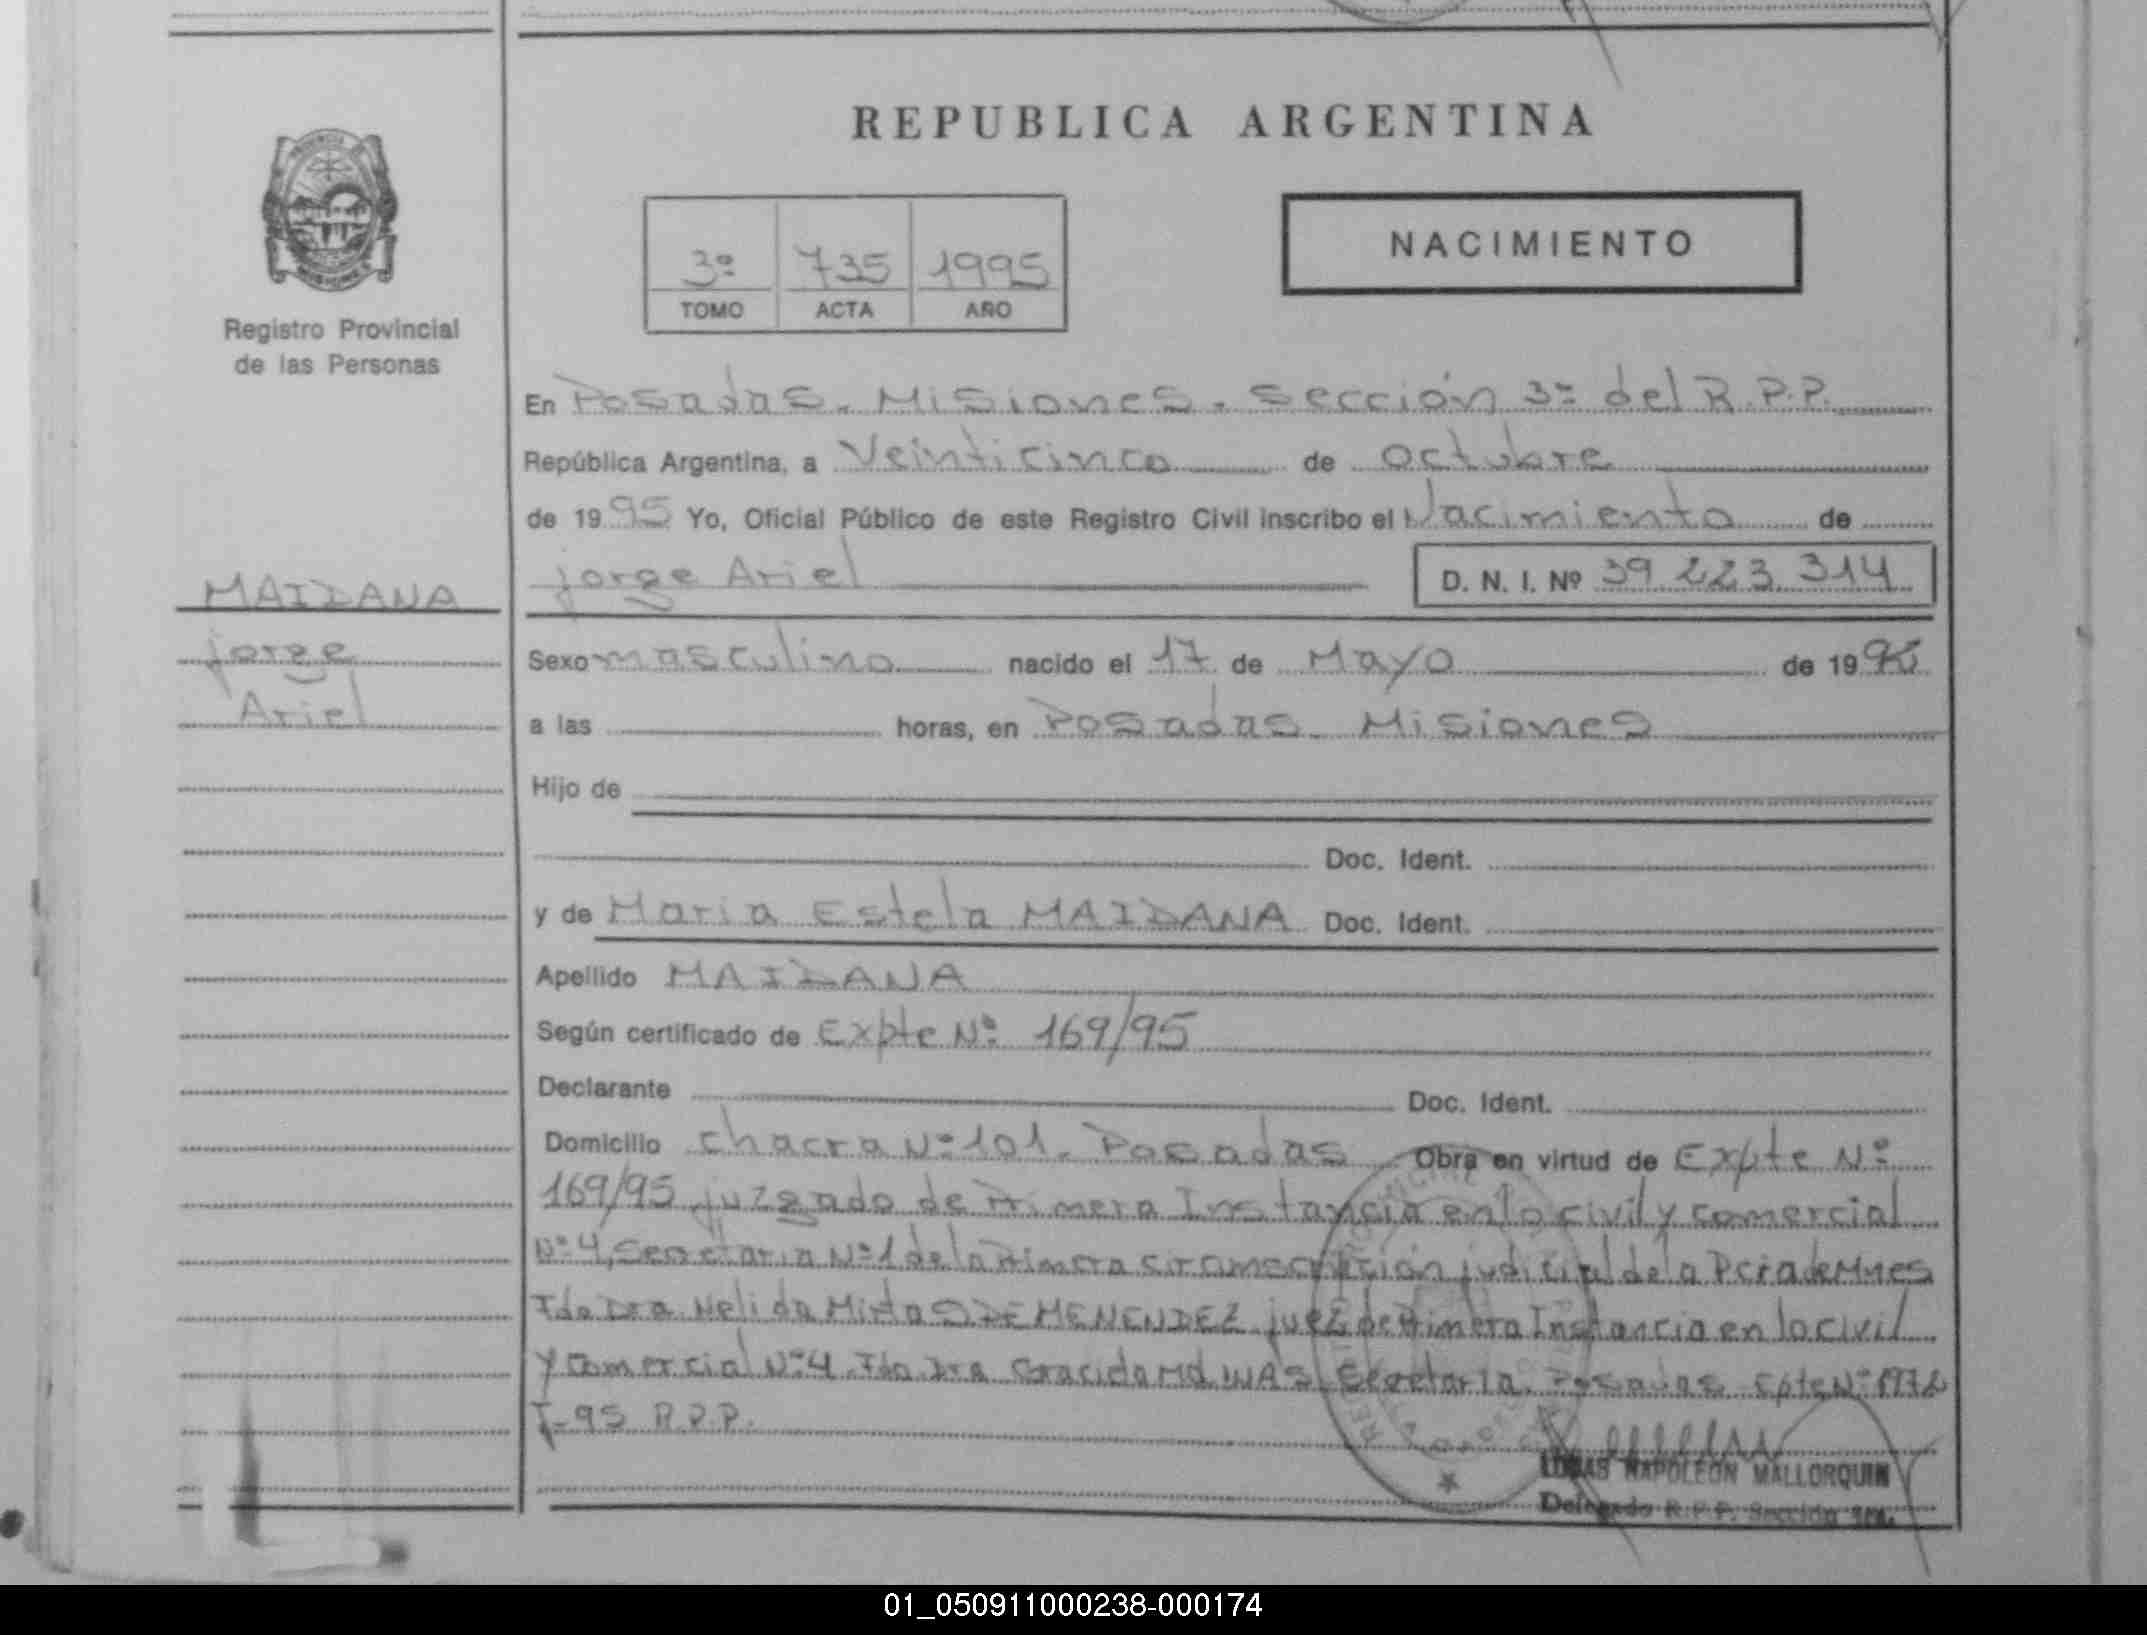 REPUBLICA ARGENTINA
NACIMIENTO
3º 735 1995
TOMO ACTA AÑO
Registro Provincial
de las Personas
En Posadas. Misiones. Sección 3ª del R.P.P.
República Argentina, a Veinticinco de octubre
de 1995 Yo, Oficial Público de este Registro Civil inscribo el Nacimiento de
MAIDANA
jorge
Ariel
jorge Ariel D. N. I. Nº 39 223 314
Sexo masculino nacido el 17 de Mayo de 19
a las horas, en Posadas. Misiones
Hijo de
Doc. Ident.
y de Maria Estela MAIDANA Doc. Ident.
Apellido MAIDANA
Según certificado de Expte Nº 169/95
Declarante Doc. Ident.
Domicilio chacra Nº 101. Posadas Obra en virtud de Expte Nº
169/95 juzgado de Primera Instancia en lo civil y comercial
Nº 4, Secretaria Nº 1 de la Primera circunscripción judicial de la Pcia de Mnes
Fdo Dra. Nelida Mirta S DE MENENDEZ juez de Primera Instancia en lo civil
y comercial Nº 4. Fdo Dra Secretaria. Posadas
95 R.P.P.
LUCAS NAPOLEON MALLORQUIN
Delegado R.P.P. Sección 3ra.
01_050911000238-000174